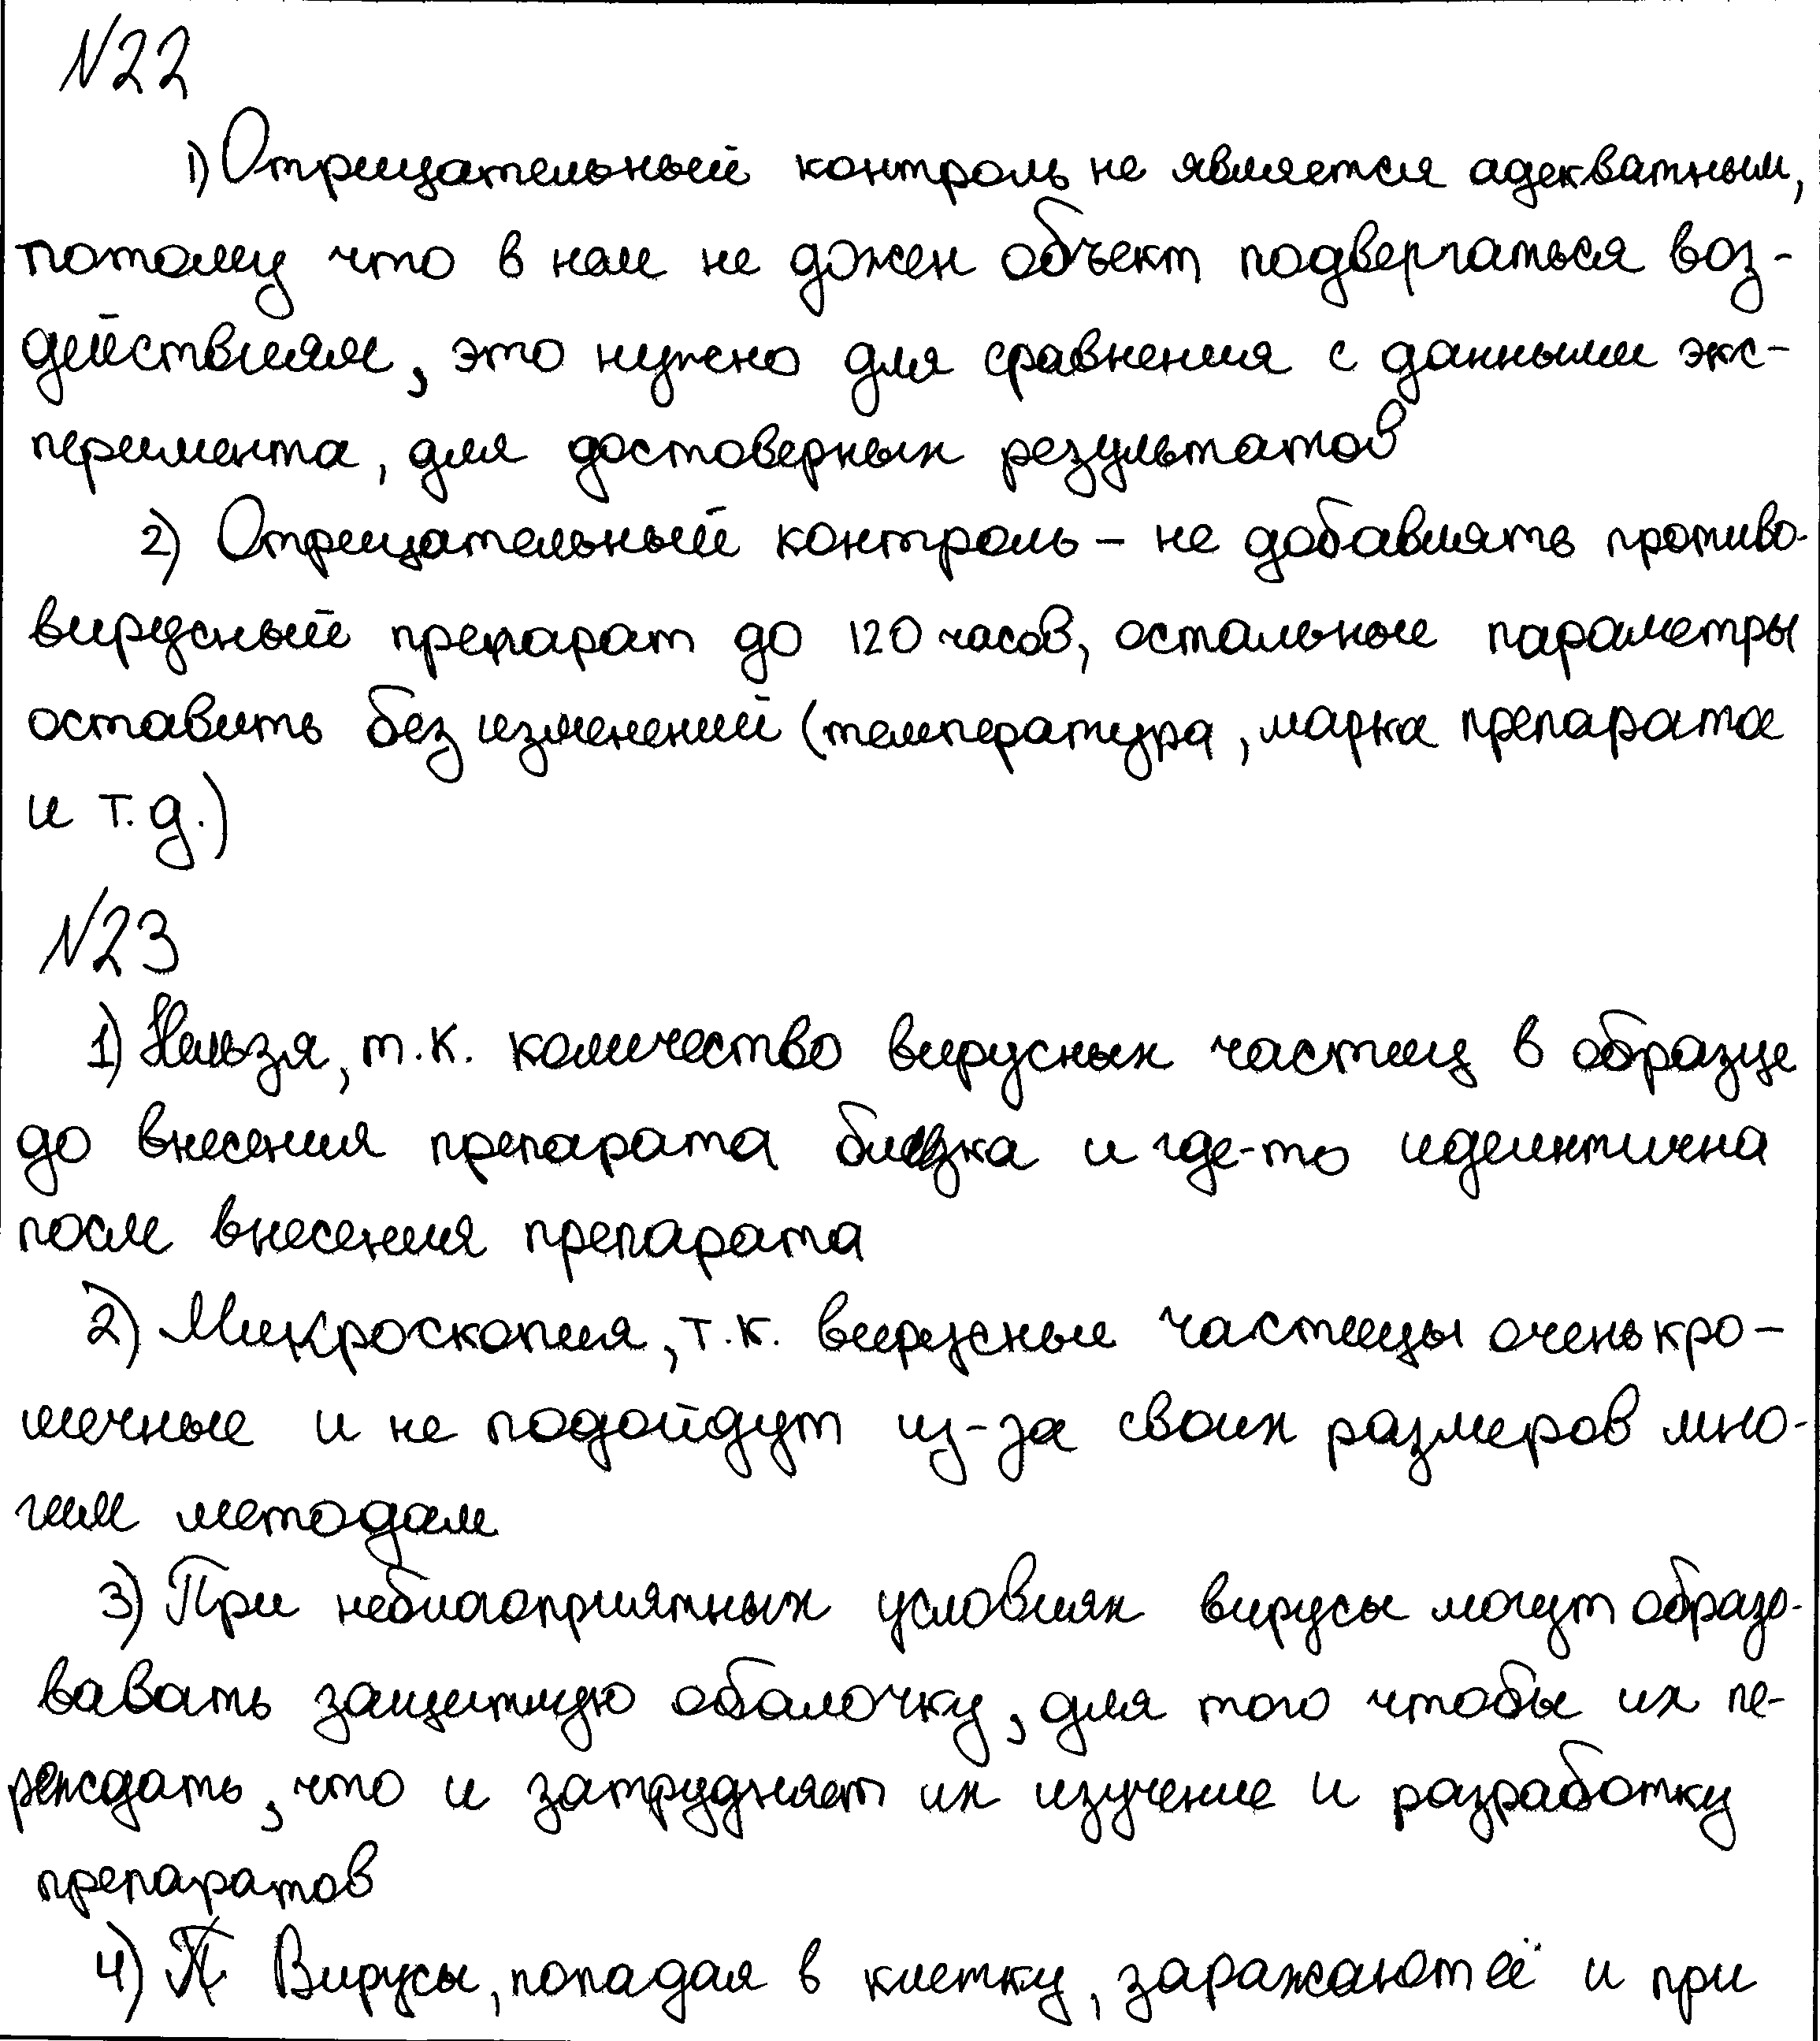 №22
1) Отрицательный контроль не является адекватным,
потому что в нем не дожен объект подвергаться воз-
действиям, это нужно для сравнения с данными экс-
перимента, для достоверных результатов
2) Отрицательный контроль – не добавлять противо-
вирусный препарат до 120 часов, остальные параметры
оставить без изменений (температура, марка препарата
и т.д.)
№23
1) Нельзя, т.к. количество вирусных частиц в образце
до внесения препарата близка и где-то идентична
после внесения препарата
2) Микроскопия, т.к. вирусные частицы очень кро-
шечные и не подойдут из-за своих размеров мно-
гим методам
3) При неблагоприятных условиях вирусы могут образо-
вавать защитную оболочку, для того чтобы их пе-
реждать, что и затрудняет их изучение и разработку
препаратов
4) Вирусы, попадая в клетку, заражают её и при